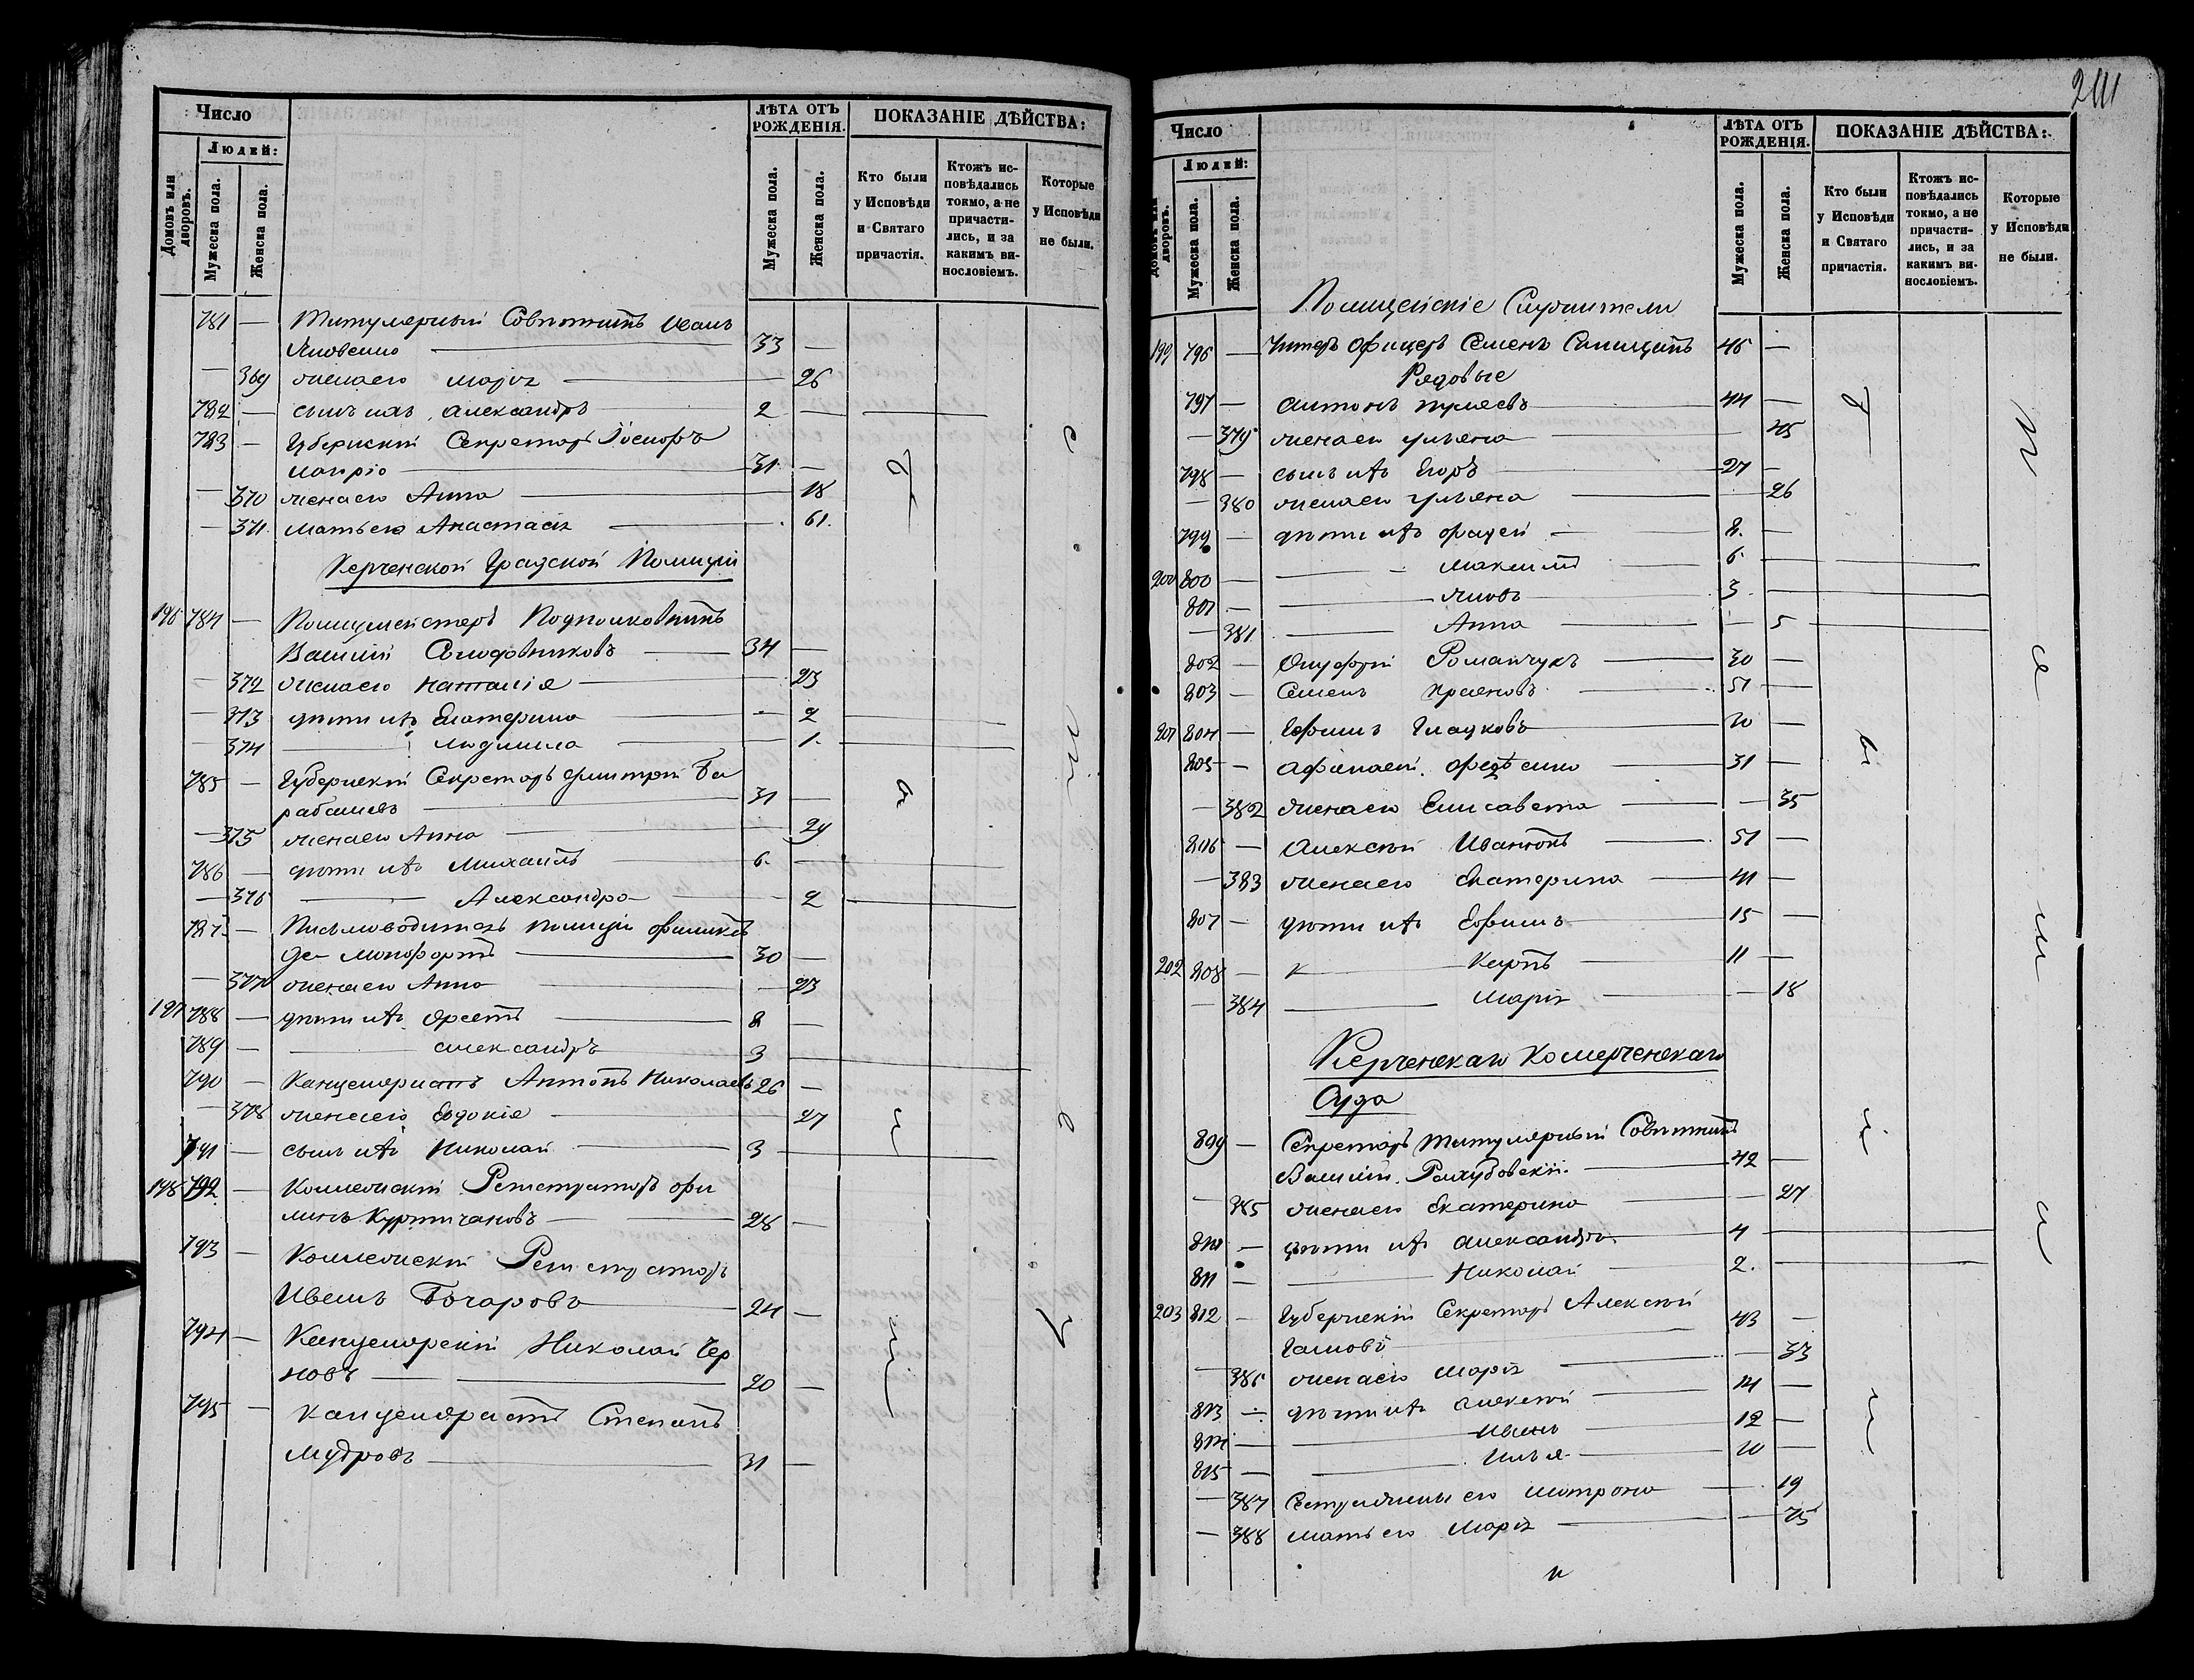 Число
Людей:
Домовъ или дворовъ.
Мужеска пола.
Женска пола.
ЛѢТА ОТЪ РОЖДЕНІЯ.
Мужеска пола.
Женска пола.
ПОКАЗАНІЕ ДѢЙСТВА:
Кто были у Исповѣди и Святаго причастія.
Ктожъ исповѣдались токмо, а не причастились, и за какимъ винословіемъ.
Которые у Исповѣди не были.
781 — Титулярный Совѣтникъ Иванъ
Яковенко — 33 —
— 369 жена его Марія — 26
782 — сынъ ихъ Александръ 2 —
783 — Губернскій Секретарь
31 —
— 370 жена его Анна — 18
— 371 мать его Анастасія — 61
Керченской Градской Полиціи
196 784 — Полицмейстеръ Подполковникъ
Василій Солодовниковъ — 34 —
— 372 жена его Наталія — 23
— 373 дѣти ихъ Екатерина — 2
— 374 — Людмила — 1
785 — Губернскій Секретарь Дмитрій Ба
рабашевъ — 31 —
— 375 жена его Анна — 29
786 — дѣти ихъ Михаилъ 6 —
— 376 — Александра — 2
787 — Письмоводитель полиціи Феликсъ
де-Монфортъ — 30 —
— 377 жена его Анна — 23
197 788 — дѣти ихъ Орестъ — 8 —
789 — — Александръ 3
790 — Канцеляристъ Антонъ Николаевъ 26 —
— 378 жена его Евдокія — 27
791 — сынъ ихъ Николай — 3
198 792 — Коллежскій Регистраторъ
28 —
793 — Коллежскій Регистраторъ
Иванъ Бочаровъ — 24 —
794 — Канцелярскій Николай Чер
новъ — 20 —
795 — Канцеляристъ Степанъ
Мудровъ — 31 —
211
Число
Людей:
Домовъ или дворовъ.
Мужеска пола.
Женска пола.
ЛѢТА ОТЪ РОЖДЕНІЯ.
Мужеска пола.
Женска пола.
ПОКАЗАНІЕ ДѢЙСТВА:
Кто были у Исповѣди и Святаго причастія.
Ктожъ исповѣдались токмо, а не причастились, и за какимъ винословіемъ.
Которые у Исповѣди не были.
Полицейскіе Служители
199 796 — Унтеръ Офицеръ Семенъ 46 —
Рядовые
797 — Антонъ — 44 —
— 379 жена его Ульяна — 45
798 — сынъ ихъ Егоръ — 27 —
— 380 жена его Ульяна — 26
799 — дѣти ихъ — 8 —
200 800 — — Максимъ 6
801 — — Яковъ 3
— 381 — Анна — 5
802 — Онуфрій Романчукъ — 30 —
803 — Семенъ — 51 —
201 804 — Ефимъ Гладковъ — 20 —
805 — Афанасій — 31 —
— 382 жена его Елисавета — 35
806 — Алексѣй — 51 —
— 383 жена его Екатерина — 41 —
807 — дѣти ихъ Ефимъ — 15 —
202 808 — — Карпъ — 11 —
— 384 — Марія — 18
Керченскаго Комерческаго
Суда
809 — Секретарь Титулярный Совѣтникъ
Василій — 42 —
— 385 жена его Екатерина — 27
810 — дѣти ихъ Александръ 4
811 — — Николай 2
203 812 — Губернскій Секретарь Алексѣй
43 —
— 386 жена его Марія — 33
813 — дѣти ихъ Алексѣй — 14 —
814 — — Иванъ 12 —
815 — — Илья — 10 —
— 387 его Матрона — 19
— 388 мать его Марія — 75